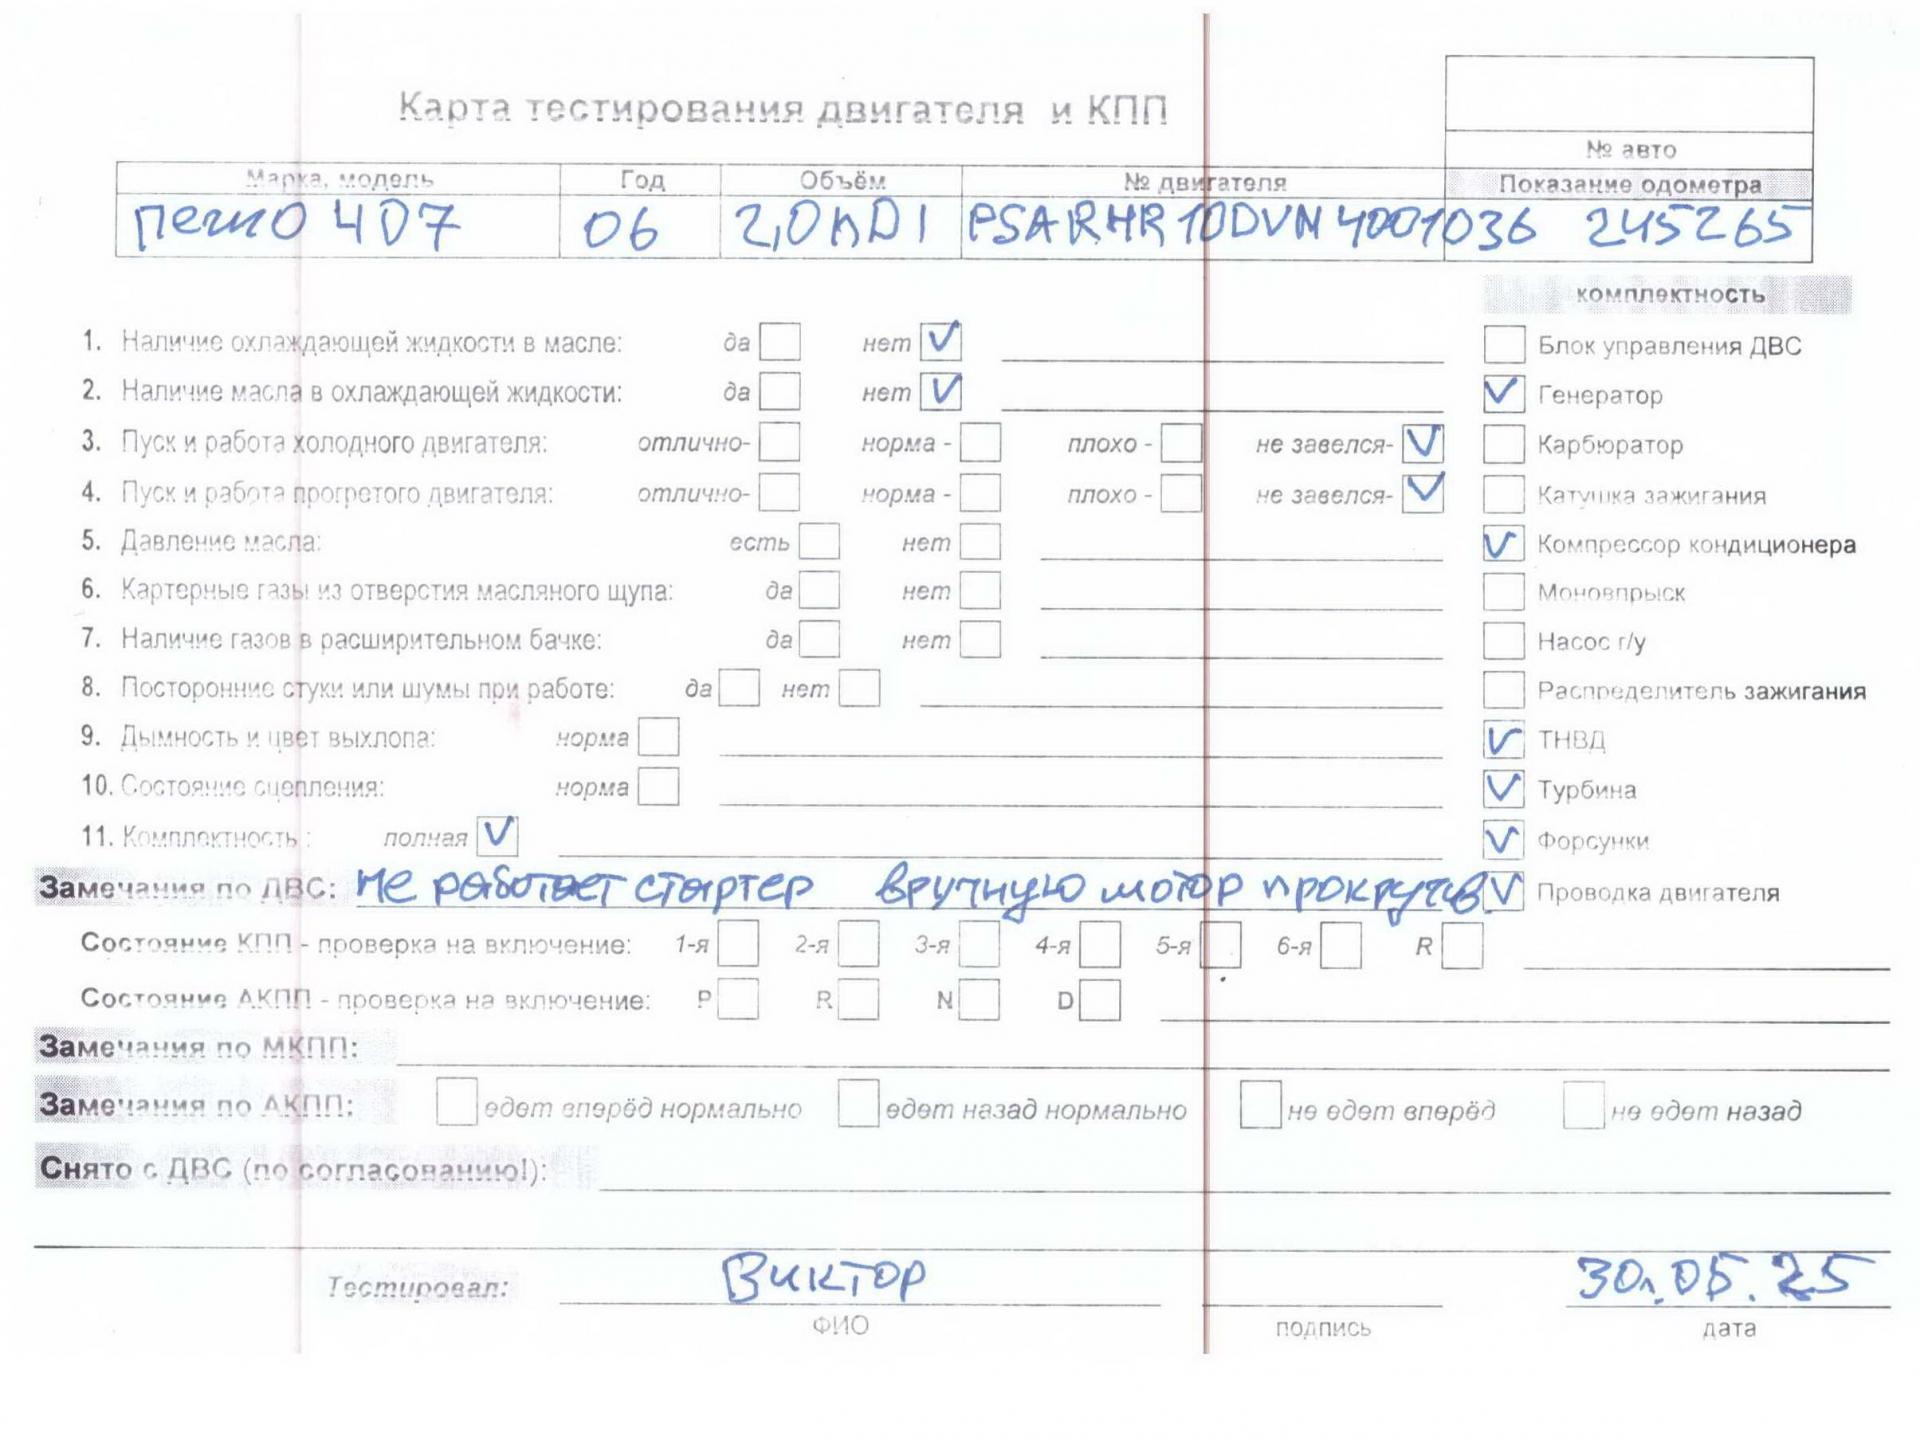 Карта тестирования двигателя и КПП
№ авто
Марка, модель Год Объём № двигателя Показание одометра
пежо 407 06 2,0 HDI PSARHR10DVN4001036 245265
комплектность
1. Наличие охлаждающей жидкости в масле: да нет Блок управления ДВС
2. Наличие масла в охлаждающей жидкости: да нет Генератор
3. Пуск и работа холодного двигателя: отлично- норма - плохо - не завелся- Карбюратор
4. Пуск и работа прогретого двигателя: отлично- норма - плохо - не завелся- Катушка зажигания
5. Давление масла: есть нет Компрессор кондиционера
6. Картерные газы из отверстия масляного щупа: да нет Моновпрыск
7. Наличие газов в расширительном бачке: да нет Насос г/у
8. Посторонние стуки или шумы при работе: да нет Распределитель зажигания
9. Дымность и цвет выхлопа: норма ТНВД
10. Состояние сцепления: норма Турбина
11. Комплектность : полная Форсунки
Замечания по ДВС: не работает стартер вручную мотор Проводка двигателя
Состояние КПП - проверка на включение: 1-я 2-я 3-я 4-я 5-я 6-я R
Состояние АКПП - проверка на включение: P R N D
Замечания по МКПП:
Замечания по АКПП: едет вперёд нормально едет назад нормально не едет вперёд не едет назад
Снято с ДВС (по согласованию!):
Тестировал: Виктор 30.05.25
ФИО подпись дата